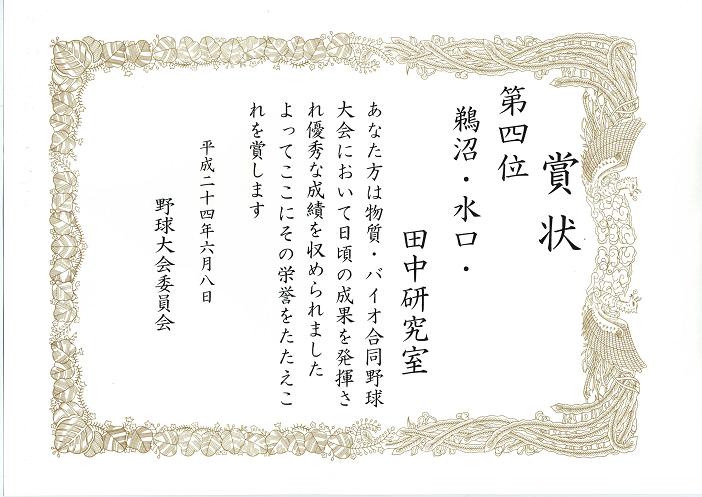 賞状
第四位
鵜沼・水口・
田中研究室
あなた方は物質・バイオ合同野球
大会において日頃の成果を発揮さ
れ優秀な成績を収められました
よってここにその栄誉をたたえこ
れを賞します
平成二十四年六月八日
野球大会委員会